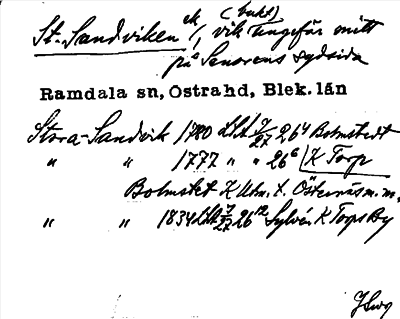 St. Sandviken ek, (bukt)
vik ungefär mitt
på Senorens sydsida
Ramdala sn, Östrahd, Blek. län
Stora-Sandvik 1780 LSA 7/27 26⁴ Bolmstedt
" " 1777 " " 26⁶ K Torp
Bolmstet K Utm. t. Österäs m.m.
" " 1834 LSA 7/27 26¹² Sylvén K Torps By